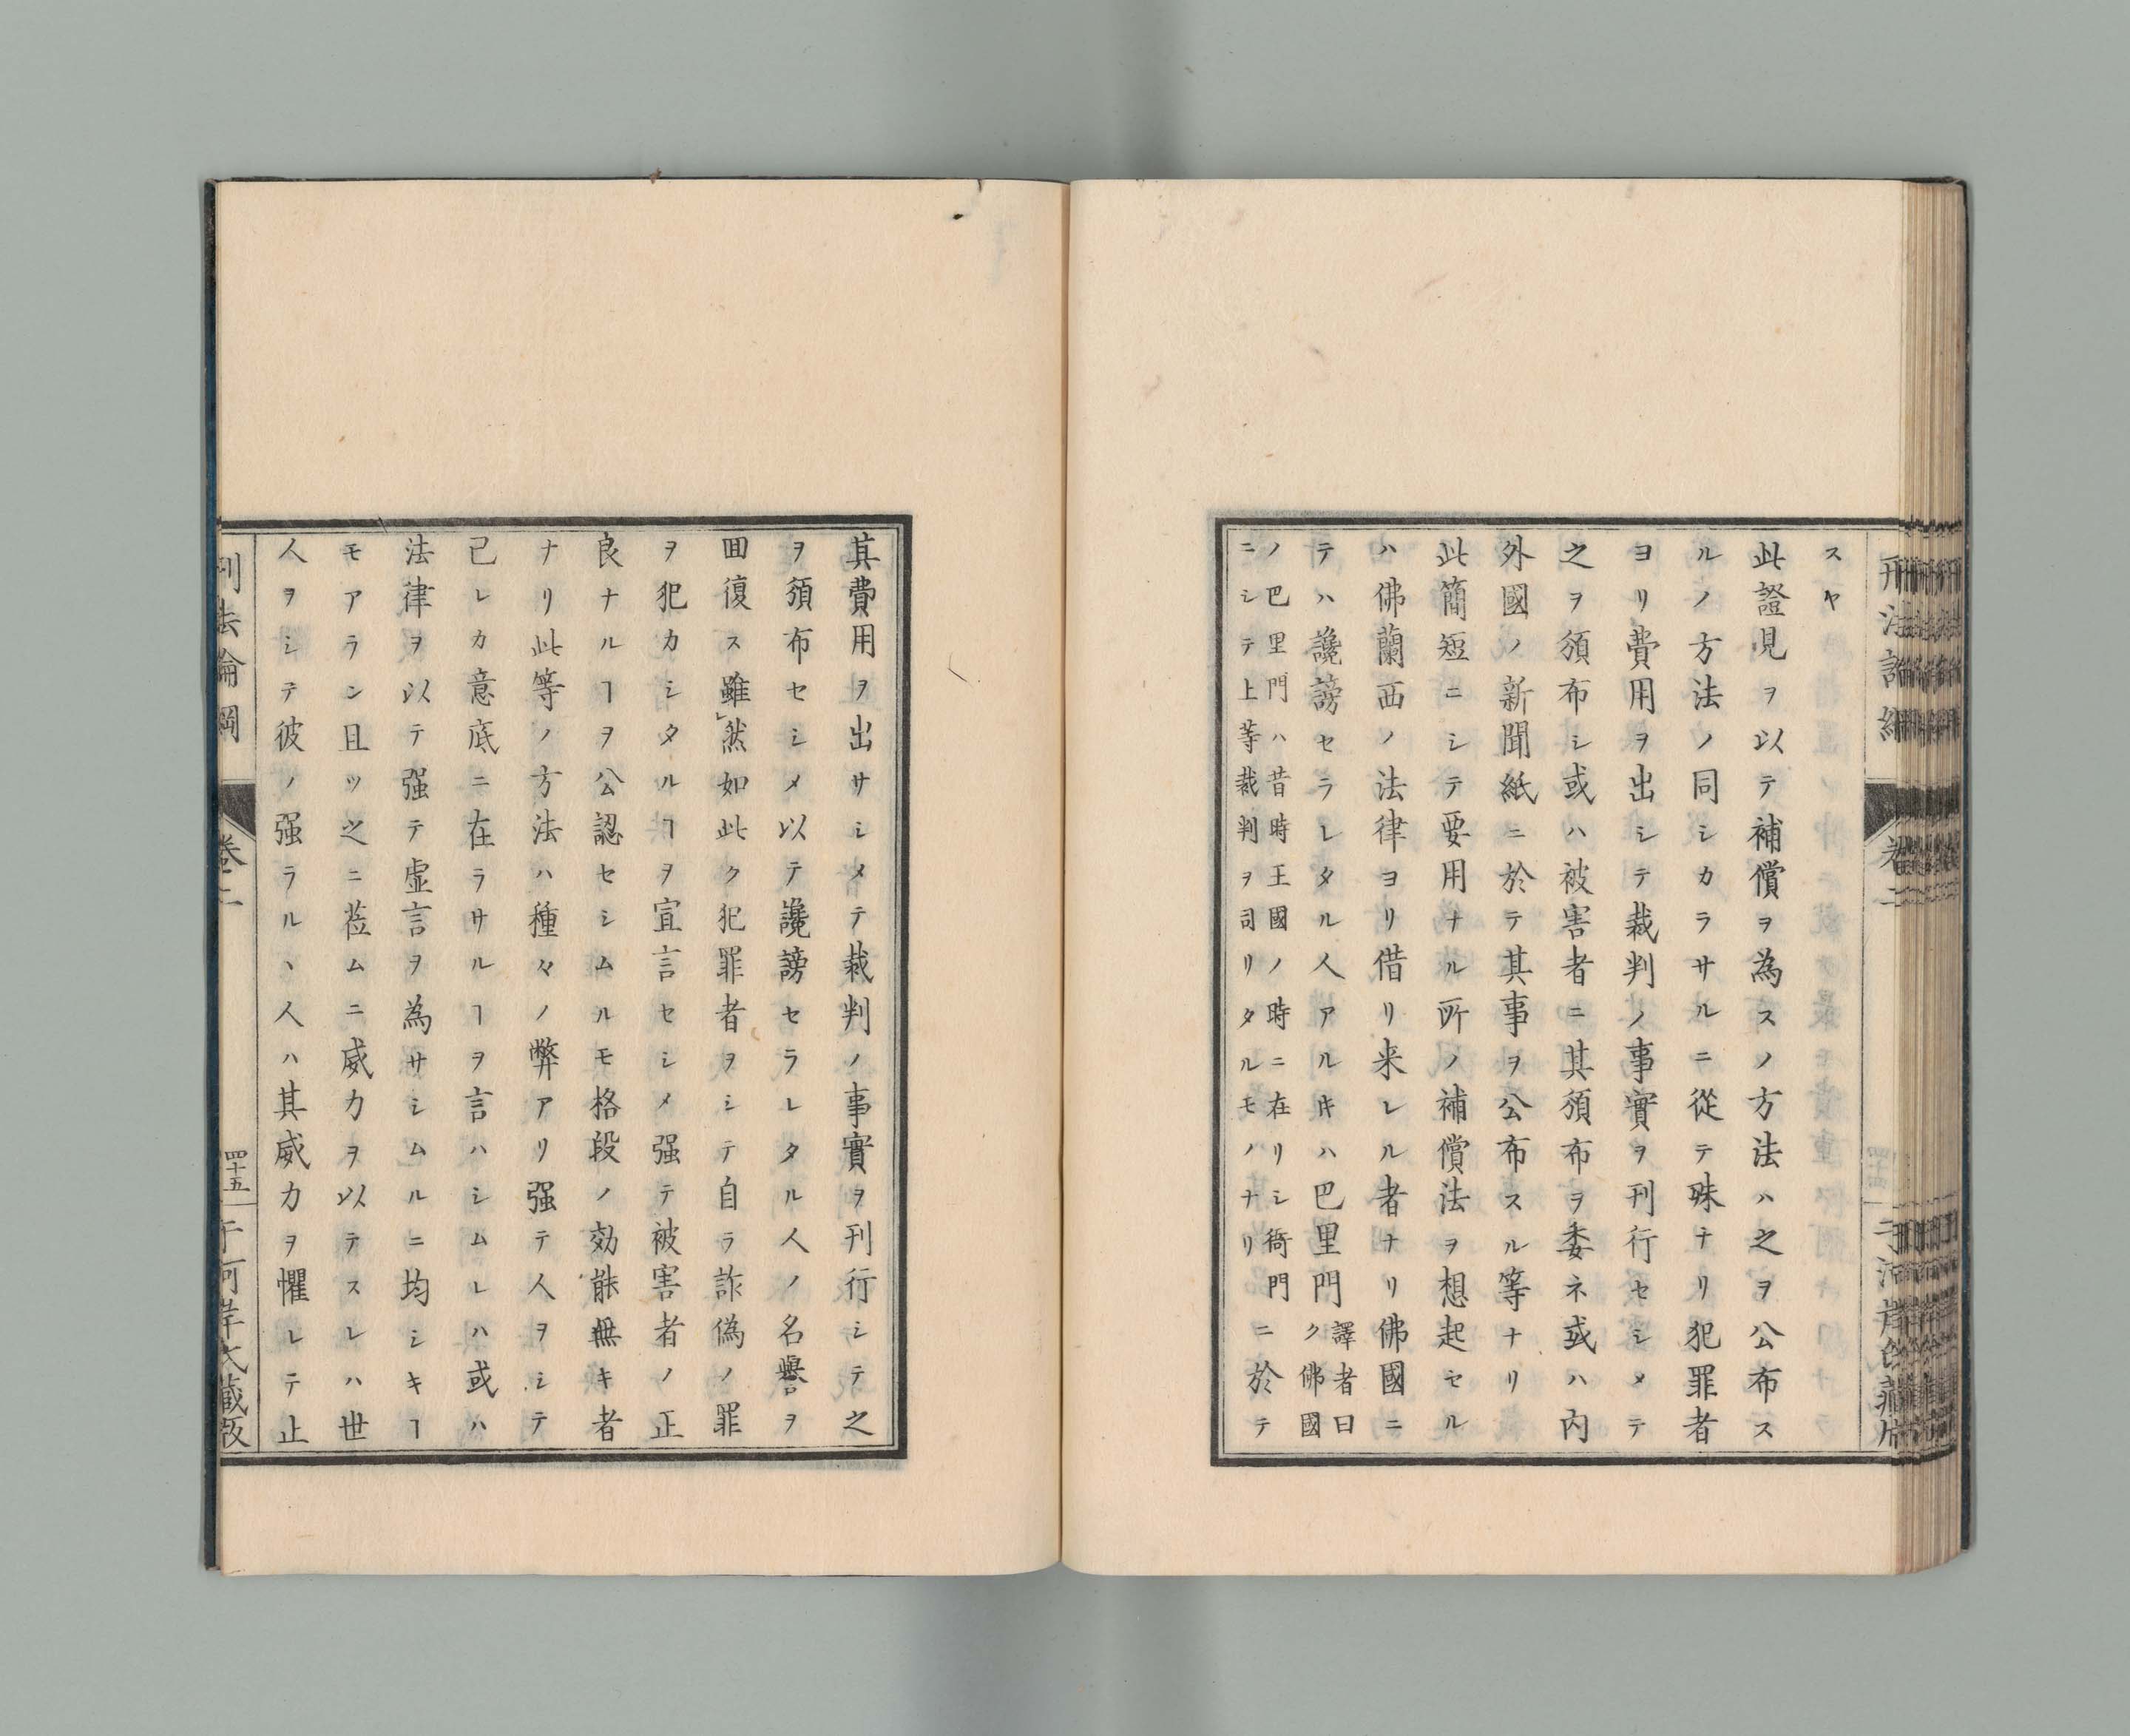 スヤ
此證見ヲ以テ補償ヲ為スノ方法ハ之ヲ公布ス
ルノ方法ノ同シカラサルニ從テ殊ナリ犯罪者
ヨリ費用ヲ出シテ裁判ノ事實ヲ刊行セシメテ
之ヲ頒布シ或ハ被害者ニ其頒布ヲ委ネ或ハ内
外國ノ新聞紙ニ於テ其事ヲ公布スル等ナリ
此簡短ニシテ要用ナル所ノ補償法ヲ想起セル
ハ佛蘭西ノ法律ヨリ借リ来レル者ナリ佛國ニ
テハ讒謗セラレタル人アル𪜈ハ巴里門譯者曰
ク佛國
ノ巴里門ハ昔時王國ノ時ニ在リシ衙門
ニシテ上等裁判ヲ司リタルモノナリニ於テ
其費用ヲ出サシメテ裁判ノ事實ヲ刊行シテ之
ヲ頒布セシメ以テ讒謗セラレタル人ノ名譽ヲ
囬復ス雖然如此ク犯罪者ヲシテ自ラ詐偽ノ罪
ヲ犯カシタルヿヲ宣言セシメ强テ被害者ノ正
良ナルヿヲ公認セシムルモ格段ノ効能無キ者
ナリ此等ノ方法ハ種々ノ弊アリ强テ人ヲシテ
己レカ意底ニ在ラサルヿヲ言ハシムレハ或ハ
法律ヲ以テ强テ虚言ヲ為サシムルニ均シキヿ
モアラン且ツ之ニ莅ムニ威力ヲ以テスレハ世
人ヲシテ彼ノ强ラルヽ人ハ其威力ヲ懼レテ止
刑法論綱
卷二
四十五